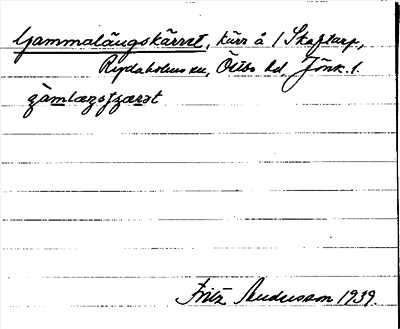 Gammalängskärret, kärr å 1 Skaftarp,
Rydaholms sn, Östbo hd, Jönk. l.
gàmlæŋsçærət
Fritz Andersson 1939.